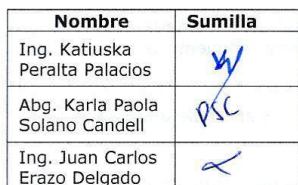 Nombre Sumilla
Ing. Katiuska
Peralta Palacios
Abg. Karla Paola
Solano Candell
PSC
Ing. Juan Carlos
Erazo Delgado